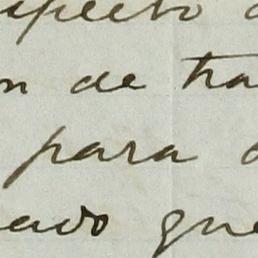 specto
n de tra
para
ado que